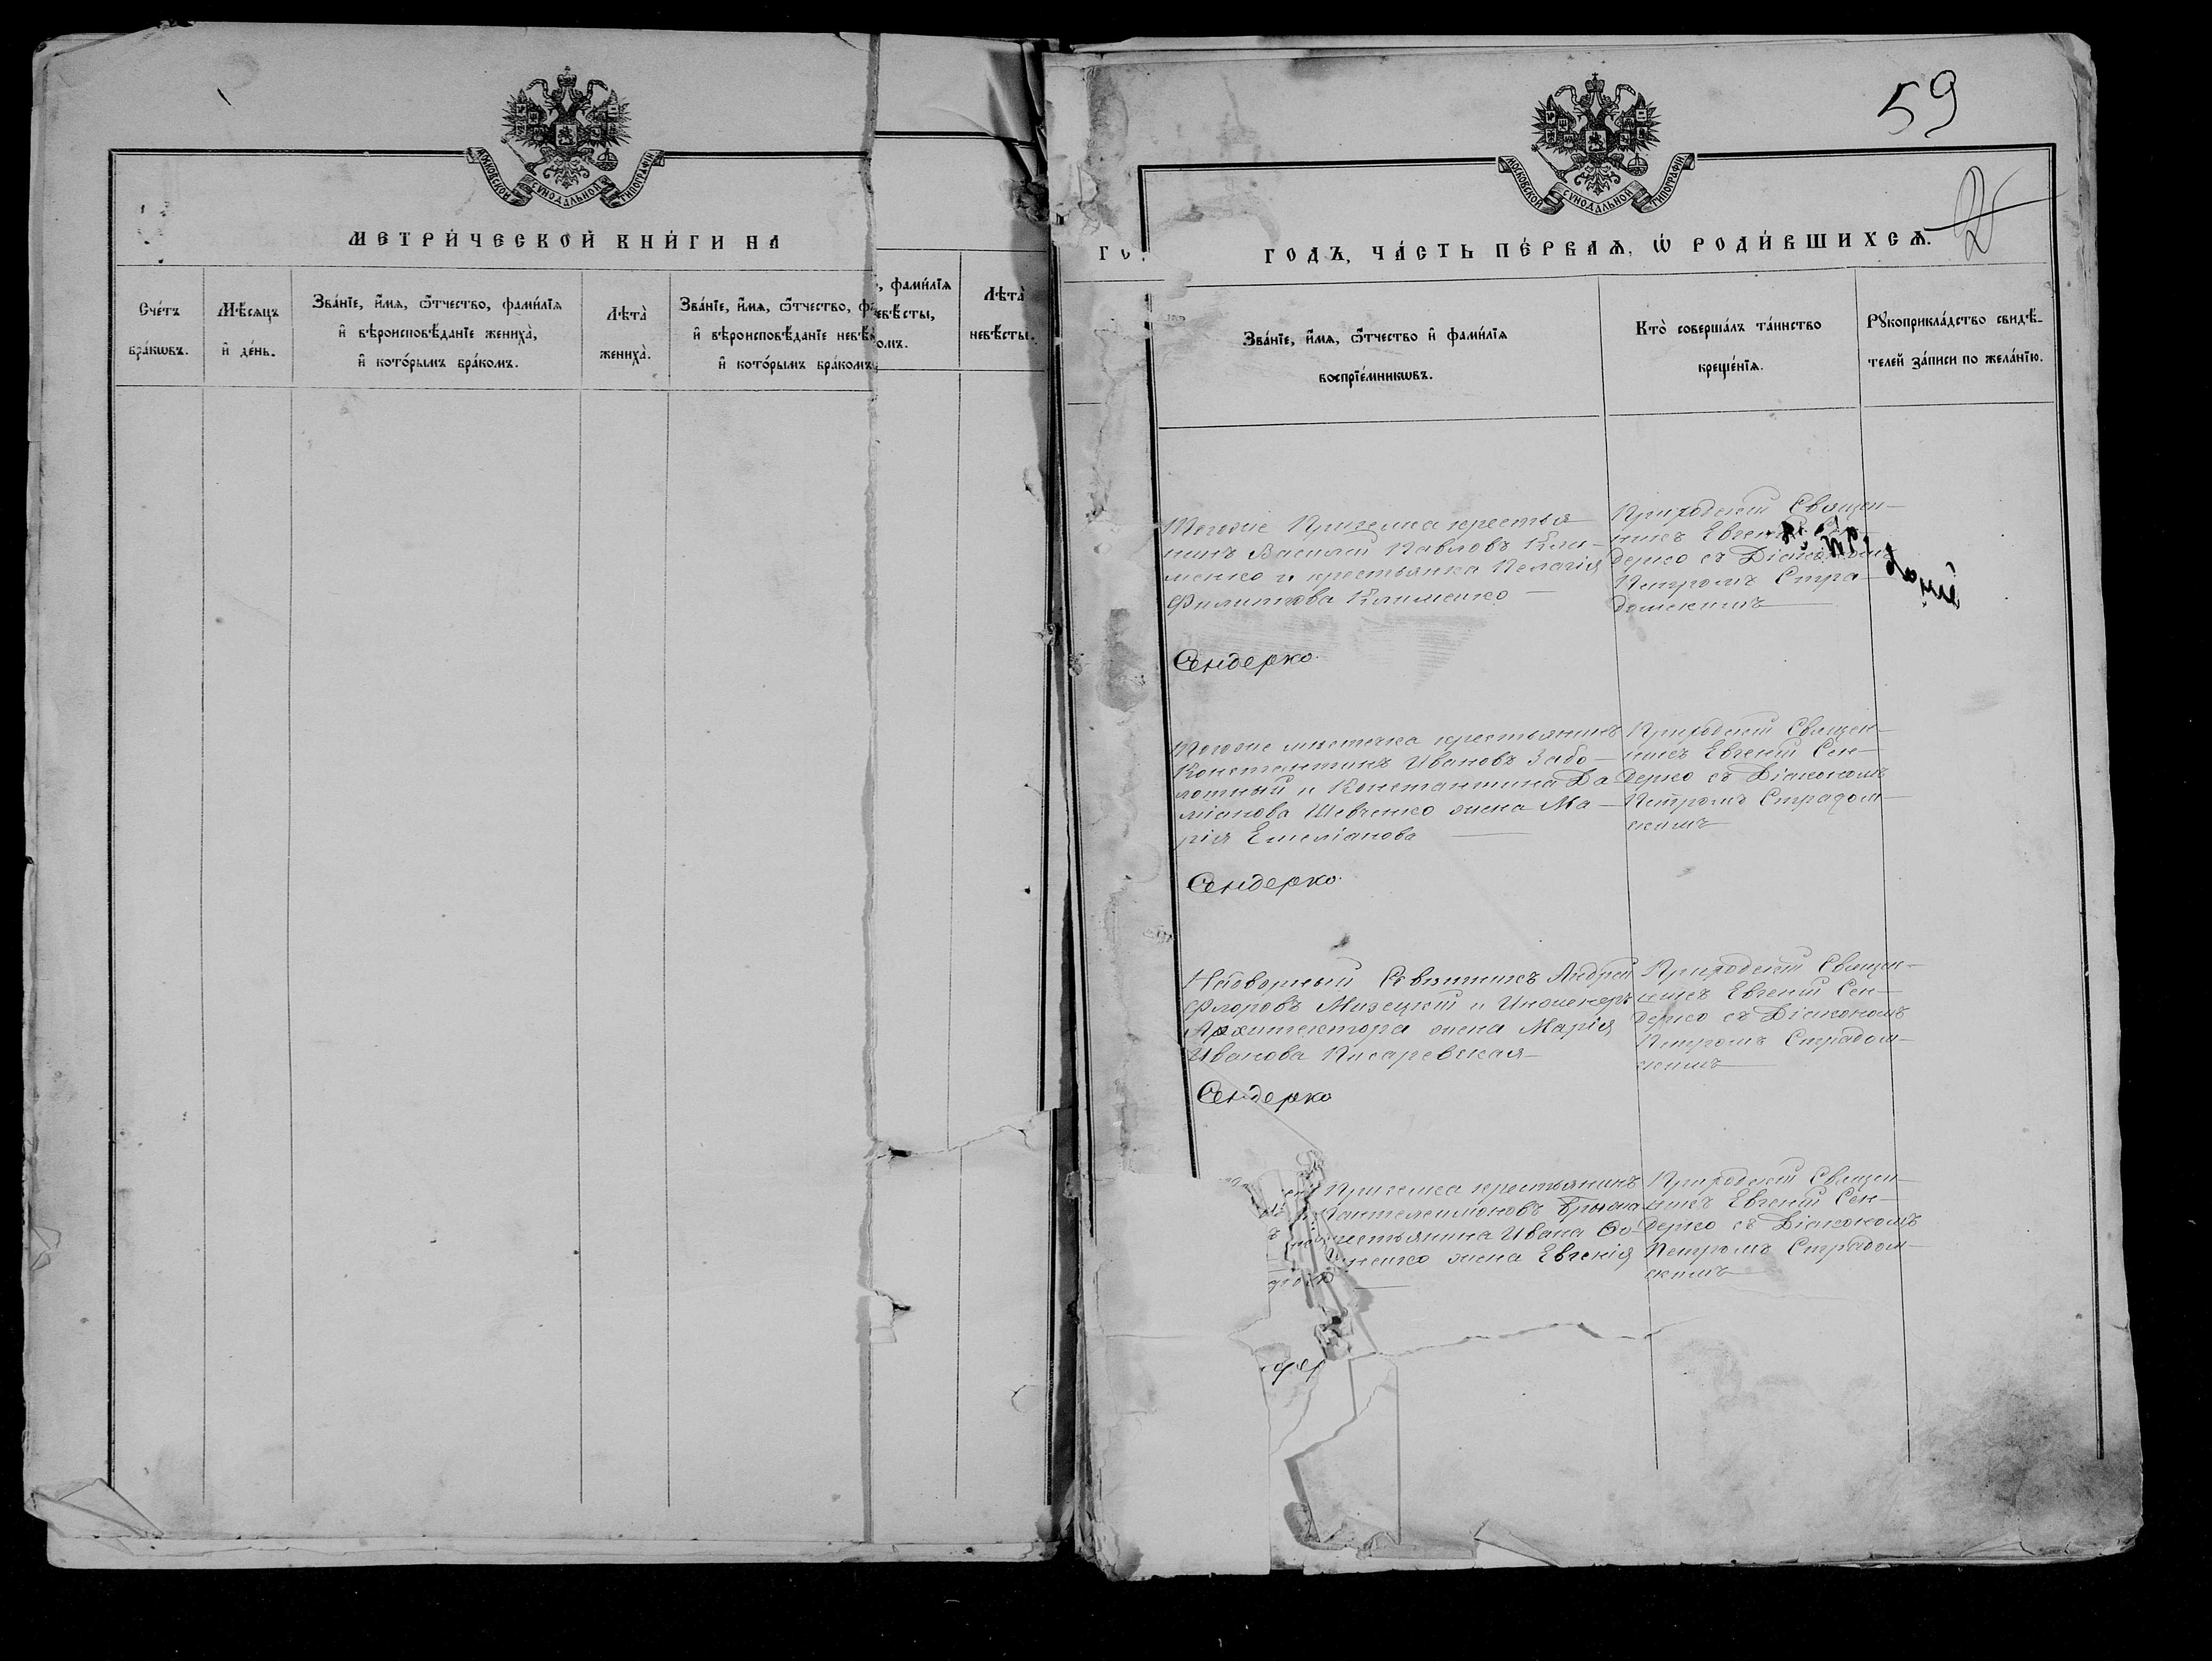 МОСКОВСКОЙ СУНОДАЛЬНОЙ ТИПОГРАФІИ
МЕТРИ́ЧЕСКОЙ КНИ́ГИ НА
Сче́тъ
бра́кѡвъ.
Мѣ́сяцъ
и҆ де́нь.
Зва́нїе, и҆́мѧ, ѻ҆́тчество, фами́лїѧ
и҆ вѣроисповѣ́данїе жениха̀,
и҆ кото́рымъ бра́комъ.
Лѣта̀
жениха̀.
Зва́нїе, и҆́мѧ, ѻ҆́тчество,
и҆ вѣроисповѣ́данїе
и҆ кото́рымъ бра́комъ
фами́лїѧ
Лѣта̀
невѣ́сты.
59
МОСКОВСКОЙ СУНОДАЛЬНОЙ ТИПОГРАФІИ
ГОДЪ, ЧА́СТЬ ПЕ́РВАѦ, Ѡ҆ РОДИ́ВШИХСѦ.
Зва́нїе, и҆́мѧ, ѻ҆́тчество и҆ фами́лїѧ
воспрїе́мникѡвъ.
Кто̀ соверша́лъ та́инство
креще́нїѧ.
Рꙋкоприкла́дство свидѣ́-
телей за́писи по жела́нїю.
Тогоже Присели́ка крестья
нинъ Василій Павловъ Кли-
менко и крестьянка Пелагія
Филиппова Клименко
Приходскій Священ-
никъ Евгеній
дерко съ Діакономъ
Петромъ Стра-
домскимъ
Сендерко.
Тогоже мѣстечка крестьянинъ
Константинъ Ивановъ Забо-
лотный и Константина Да
міанова Шевченко жена Ма-
рія Емеліанова
Приходскій Священ-
никъ Евгеній Сен-
дерко съ Діакономъ
Петромъ Страдом-
скимъ
Сендерко.
Надворный Совѣтникъ Андрей
Флоровъ Мизецкій и Инженеръ
Архитектора жена Марія
Иванова Писаревская
Приходскій Священ-
никъ Евгеній Сен-
дерко съ Діакономъ
Петромъ Страдом-
скимъ
Сендерко
крестьянинъ
Пантелеимоновъ
Ивана
жена Евгенія
Приходскій Священ-
никъ Евгеній Сен-
дерко съ Діакономъ
Петромъ Страдом-
скимъ